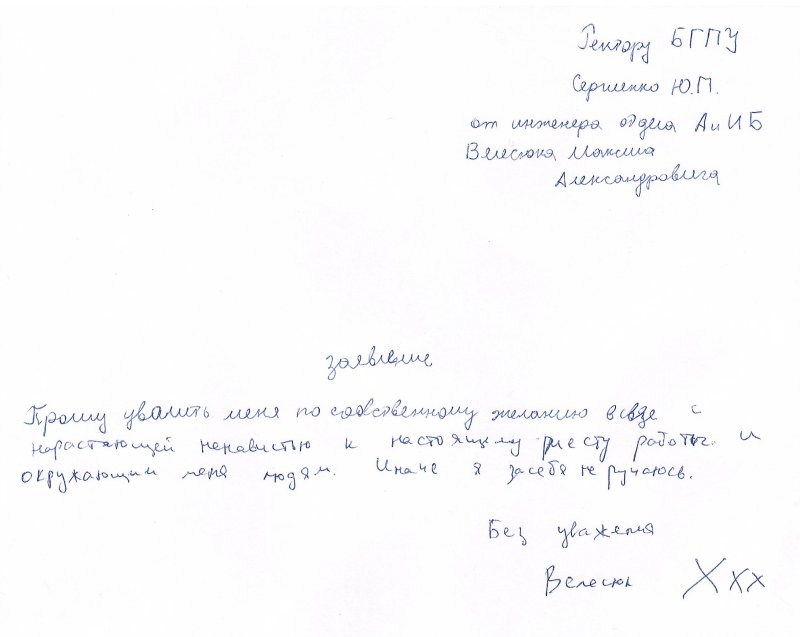 Ректору БГПУ
Сергиенко Ю.П.
от инженера отдела АиИБ
Велесюка Максима
Александровича
заявление
Прошу уволить меня по собственному желанию в связе с
нарастающей ненавистью к настоящему месту работы и
окружающим меня людям. Иначе я за себя не ручаюсь.
Без уважения
Велесюк Ххх